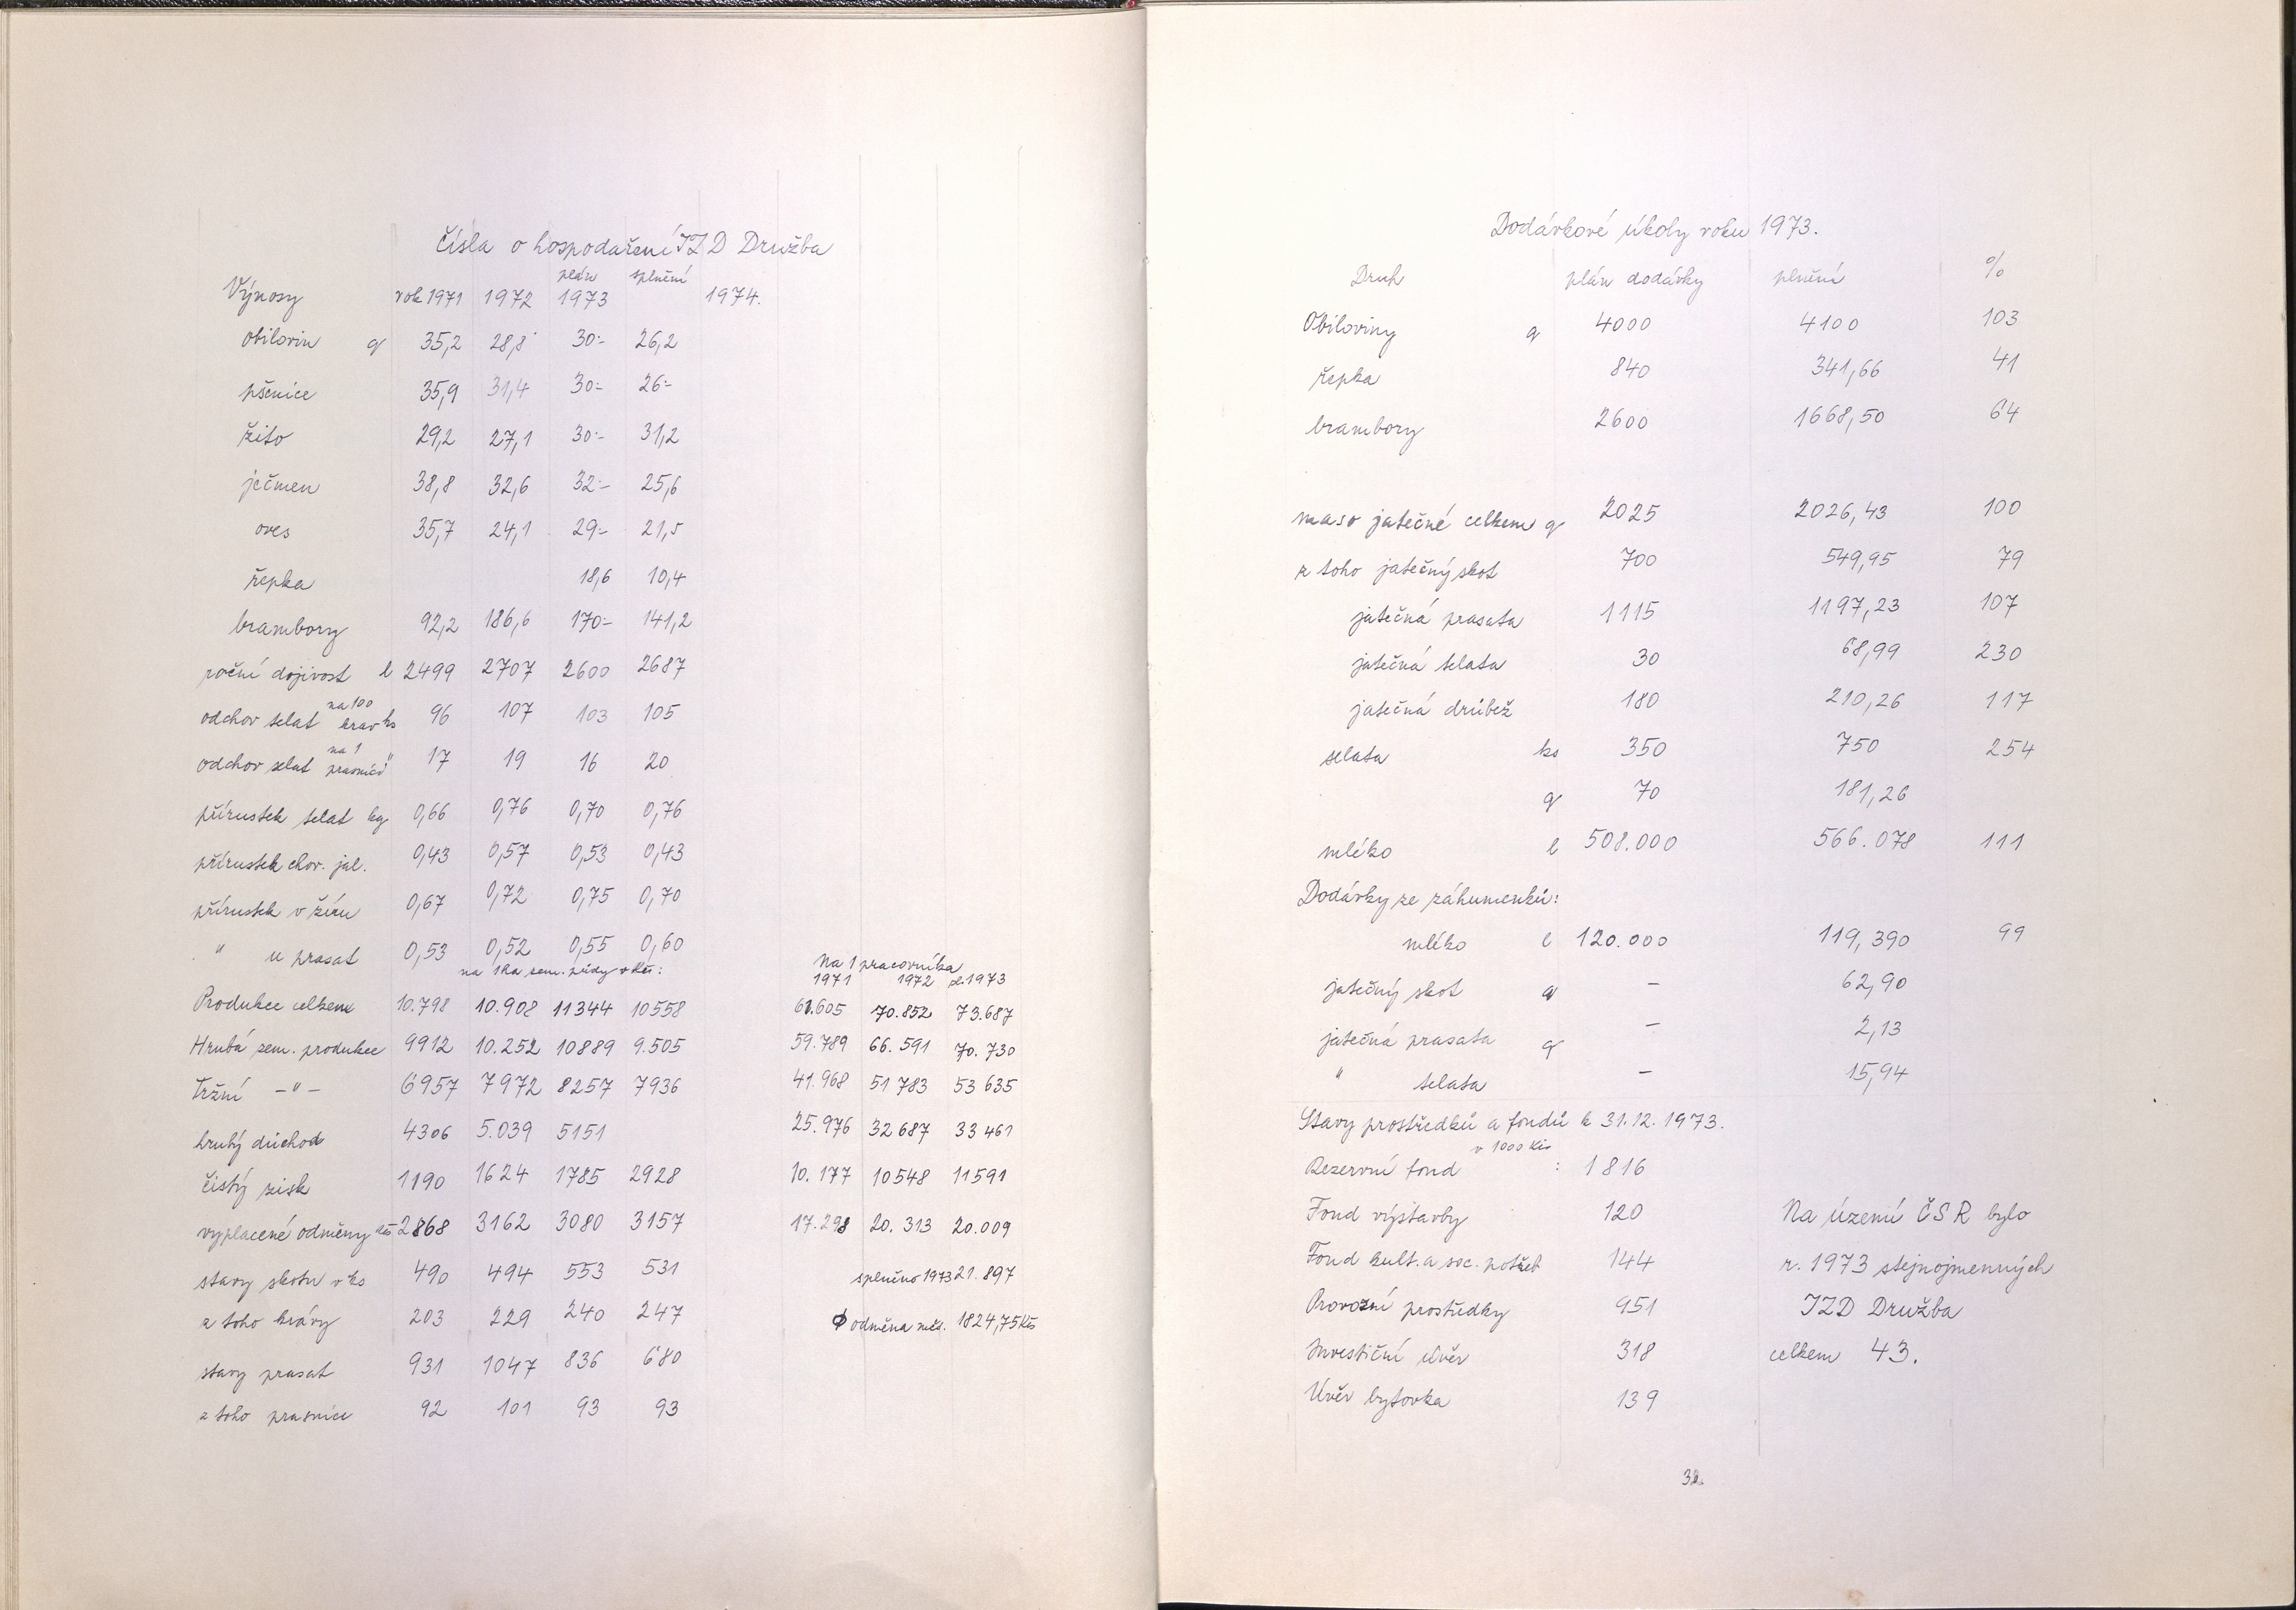 Čísla o hospodaření JZD Družba
plán splnění
Výnosy rok 1971 1972 1973 1974.
obilovin q 35,2 28,8 30:- 26,2
pšenice 35,9 31,4 30:- 26:-
žito 29,2 27,1 30:- 31,2
ječmen 38,8 32,6 32:- 25,6
oves 35,7 24,1 29:- 21,5
řepka 18,6 10,4
brambory 92,2 186,6 170:- 141,2
roční dojivost l 2499 2707 2600 2687
odchov telat na 100 krav ks 96 107 103 105
odchov selat na 1 prasnici " 17 19 16 20
přírustek telat kg 0,66 0,76 0,70 0,76
přírustek chov. jal. 0,43 0,57 0,53 0,43
přírustek v žíru 0,67 0,72 0,75 0,70
" u prasat 0,53 0,52 0,55 0,60
na 1 ha zem. půdy v Kčs: Na 1 pracovníka
1971 1972 pl. 1973
Produkce celkem 10.798 10.908 11344 10558 61.605 70.852 73.687
Hrubá zem. produkce 9912 10.252 10889 9.505 59.789 66.591 70.730
Tržní -"- 6957 7972 8257 7936 41.968 51 783 53 635
hrubý důchod 4306 5.039 5151 25.976 32 687 33 461
čistý zisk 1190 1624 1785 2928 10.177 10548 11591
vyplacené odměny Kčs 2868 3162 3080 3157 17.298 20.313 20.009
stavy skotu v ks 490 494 553 531 splněno 1973 21.897
z toho krávy 203 229 240 247 Φ odměna měs. 1824,75 Kčs
stavy prasat 931 1047 836 680
z toho prasnice 92 101 93 93
Dodávkové úkoly roku 1973.
Druh plán dodávky plnění %
Obiloviny q 4000 4100 103
řepka 840 341,66 41
brambory 2600 1668,50 64
maso jatečné celkem q 2025 2026,43 100
z toho jatečný skot 700 549,95 79
jatečná prasata 1115 1197,23 107
jatečná telata 30 68,99 230
jatečná drůbež 180 210,26 117
selata ks 350 750 254
q 70 181,26
mléko l 508.000 566.078 111
Dodávky ze záhumenků:
mléko l 120.000 119,390 99
jatečný skot q - 62,90
jatečná prasata q - 2,13
" telata - 15,94
Stavy prostředků a fondů k 31.12.1973.
v 1000 Kčs
Rezervní fond : 1816
Fond výstavby 120 Na území ČSR bylo
Fond kult. a soc. potřeb 144 r. 1973 stejnojmenných
Provozní prostředky 951 JZD Družba
Investiční úvěr 318 celkem 43.
Úvěr bytovka 139